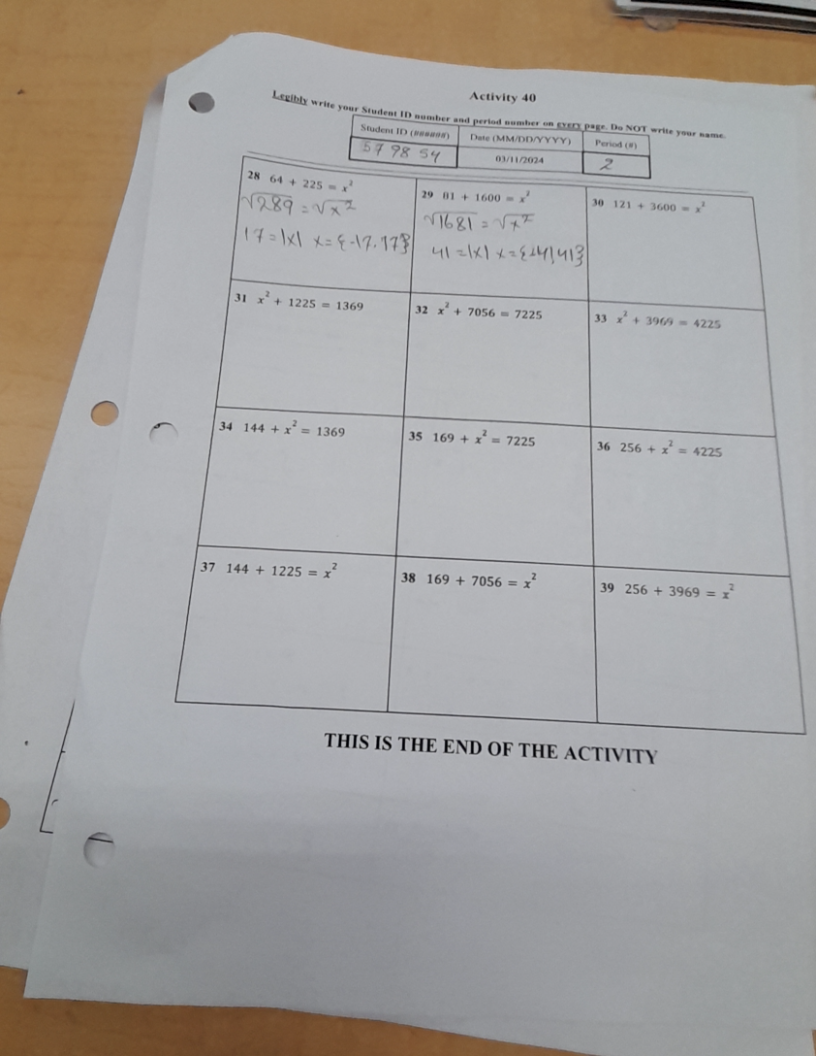 Activity 40
Legibly write your Student ID number and period number on every page. Do NOT write your name.
Student ID (######) Date (MM/DD/YYYY) Period (#)
579854 03/11/2024 2
28 64 + 225 = x²
√289 = √x²
17 = |x| x = {-17, 17}
29 81 + 1600 = x²
√1681 = √x²
41 = |x| x =
30 121 + 3600 = x²
31 x² + 1225 = 1369
32 x² + 7056 = 7225
33 x² + 3969 = 4225
34 144 + x² = 1369
35 169 + x² = 7225
36 256 + x² = 4225
37 144 + 1225 = x²
38 169 + 7056 = x²
39 256 + 3969 = x²
THIS IS THE END OF THE ACTIVITY